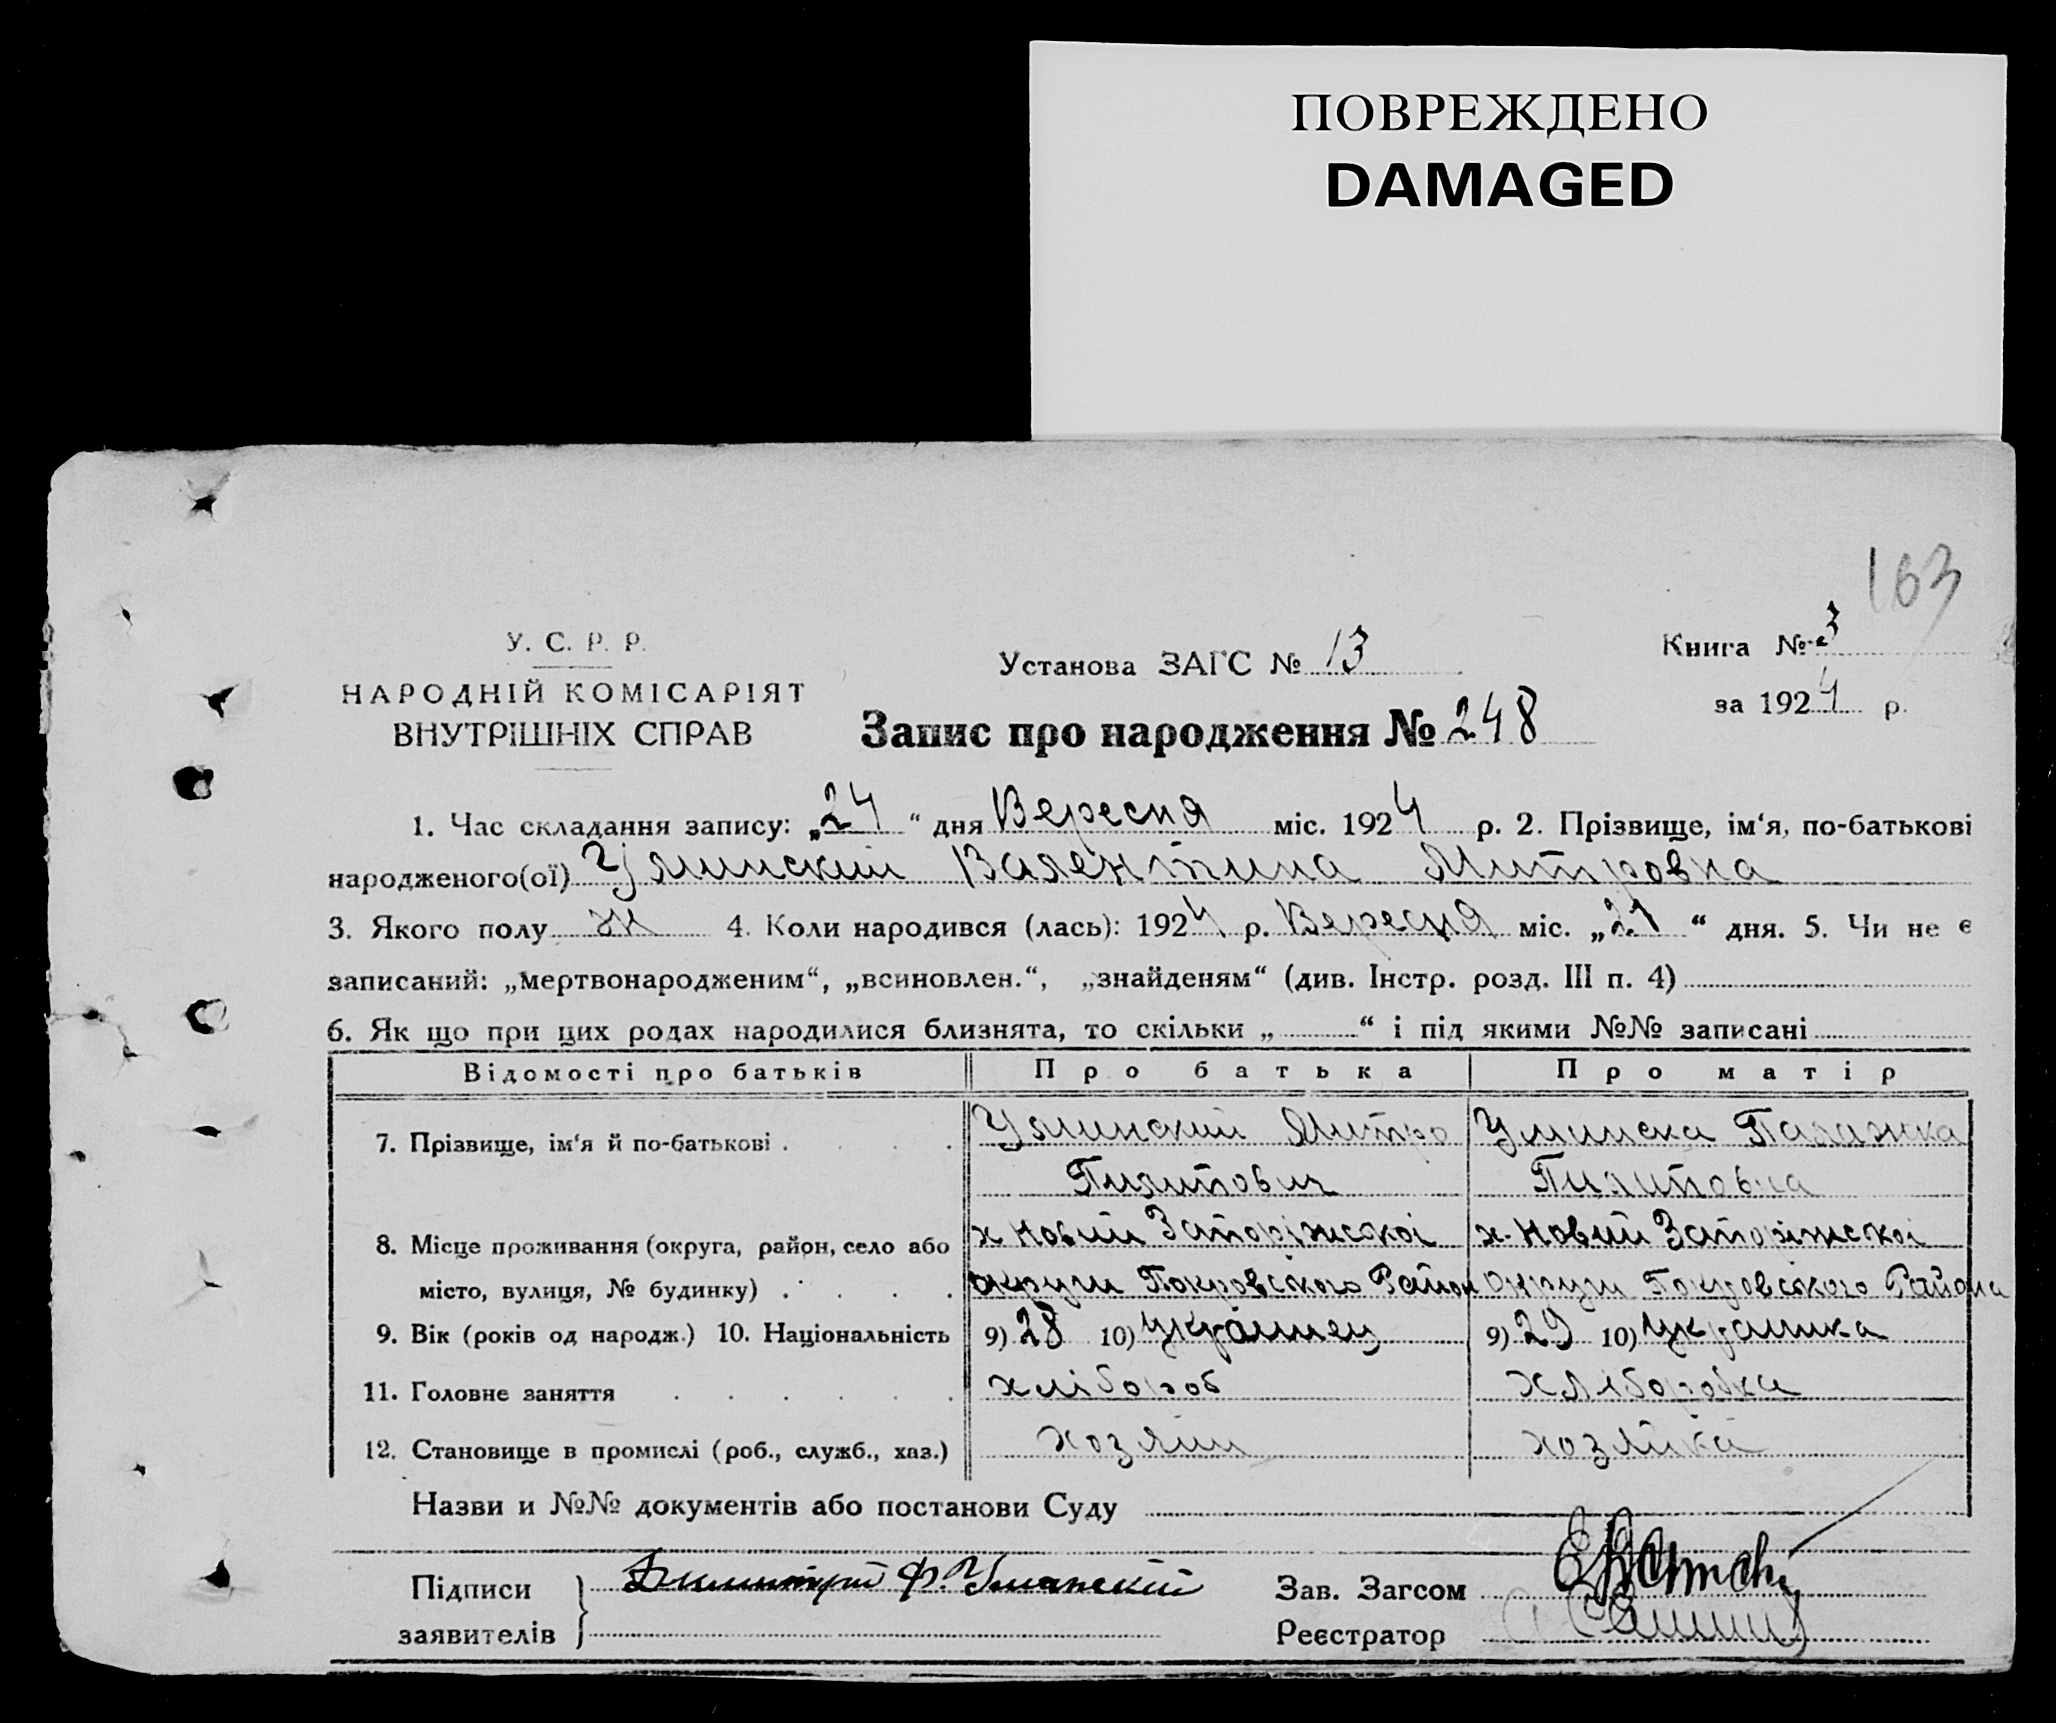 ПОВРЕЖДЕНО
DAMAGED
163
У. С. Р. Р.
НАРОДНІЙ КОМІСАРІЯТ
ВНУТРІШНІХ СПРАВ
Установа ЗАГС № 13
Книга № 3
за 1924 р.
Запис про народження № 248
1. Час складання запису: „24“ дня Вересня міс. 1924 р. 2. Прізвище, ім‘я, по-батькові
народженого(ої) Валентина Митровна
3. Якого полу ж 4. Коли народився (лась): 1924 р. Вересня міс. „21“ дня. 5. Чи не є
записаний: „мертвонародженим“, „всиновлен.“, „знайденям“ (див. Інстр. розд. III п. 4)
6. Як що при цих родах народилися близнята, то скільки „ “ і під якими №№ записані
Відомості про батьків Про батька Про матір
7. Прізвище, ім‘я й по-батькові . . . . Уминский Митро Уминска Палажка
Пилипович Пилиповна
8. Місце проживання (округа, район, село або х Новий Запоріжскоі х. Новий Запоріжскоі
місто, вулиця, № будинку) . . . . округи Покровського Район округи Покровського Района
9. Вік (років од народж.) 10. Національність 9) 28 10) Українец 9) 29 10) Украинка
11. Головне заняття . . . . . . хлібороб хліборобка
12. Становище в промислі (роб., служб., хаз.) хозяин хозяйка
Назви и №№ документів або постанови Суду
Підписи Ф. Уманский Зав. Загсом
заявителів Реєстратор